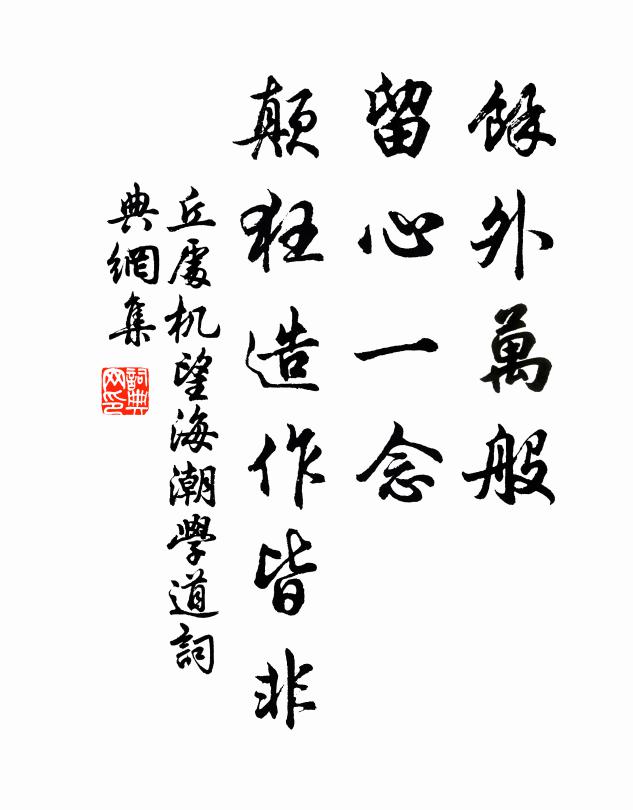 餘外萬般
留心一念
顛狂造作皆非
丘處机望海潮學道詞
典網集
詞典
网印